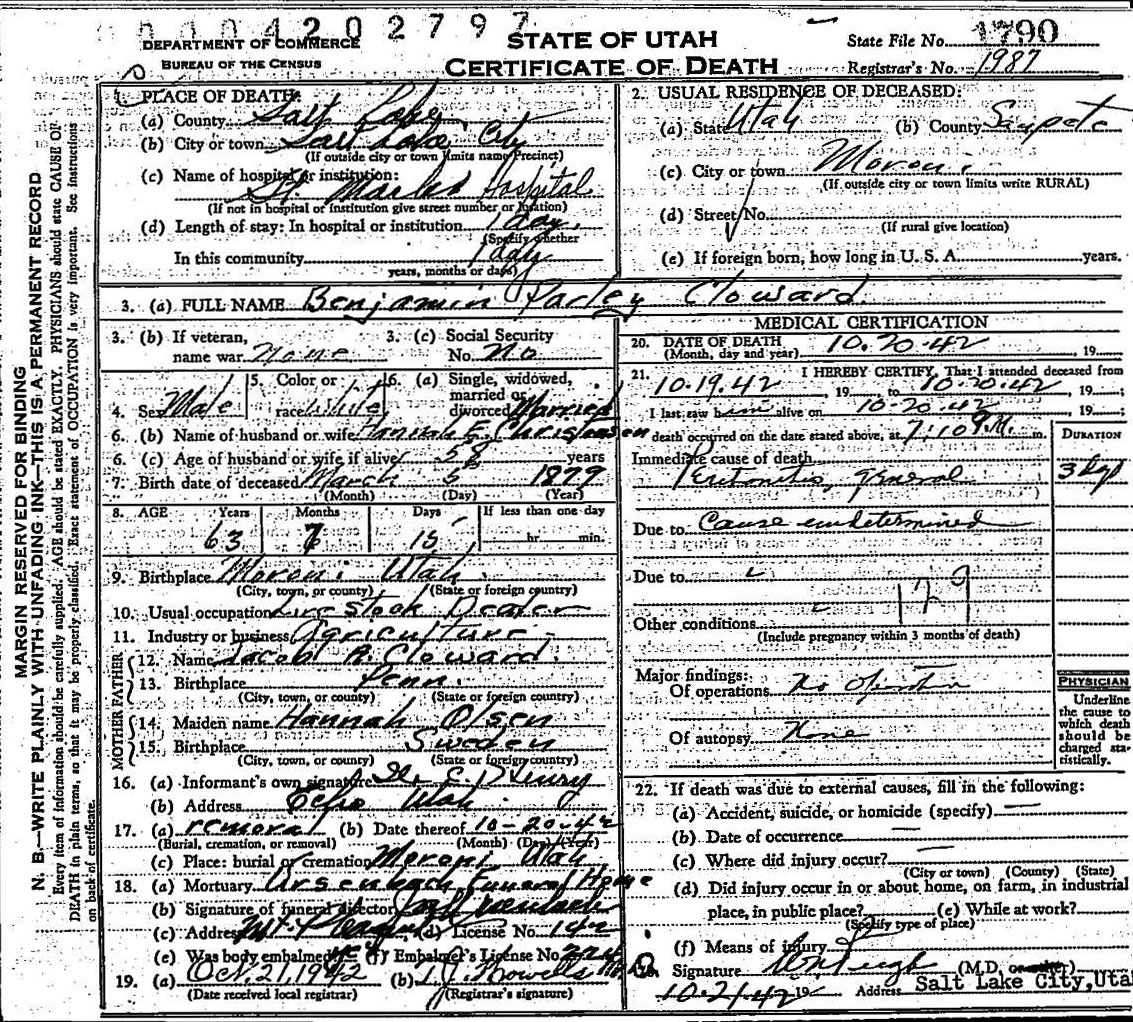 0 0 0 4 2 0 2 7 9 7
DEPARTMENT OF COMMERCE
BUREAU OF THE CENSUS
STATE OF UTAH
CERTIFICATE OF DEATH
State File No. 1790
Registrar's No. 1987
MARGIN RESERVED FOR BINDING
N. B.—WRITE PLAINLY WITH UNFADING INK—THIS IS A PERMANENT RECORD
Every item of information should be carefully supplied. AGE should be stated EXACTLY. PHYSICIANS should state CAUSE OF
DEATH in plain terms, so that it may be properly classified. Exact statement of OCCUPATION is very important. See instructions
on back of certificate.
1. PLACE OF DEATH:
(a) County Salt Lake
(b) City or town Salt Lake City
(If outside city or town limits name Precinct)
(c) Name of hospital or institution:
St. Marks Hospital
(If not in hospital or institution give street number or location)
(d) Length of stay: In hospital or institution 1 day.
(Specify whether
In this community 1 day
years, months or days)
2. USUAL RESIDENCE OF DECEASED:
(a) State Utah (b) County Sanpete
(c) City or town Moroni
(If outside city or town limits write RURAL)
(d) Street No.
(If rural give location)
(e) If foreign born, how long in U. S. A. years.
3. (a) FULL NAME Benjamin Parley Cloward
3. (b) If veteran, 3. (c) Social Security
name war None No. No
4. Sex Male 5. Color or race White 6. (a) Single, widowed, married or divorced Married
6. (b) Name of husband or wife Hannah E. Christensen
6. (c) Age of husband or wife if alive 58 years
7. Birth date of deceased March 6 1879
(Month) (Day) (Year)
8. AGE Years Months Days If less than one day
63 7 15 hr. min.
9. Birthplace Moroni Utah
(City, town, or county) (State or foreign country)
10. Usual occupation Live Stock Dealer
11. Industry or business Agriculture
FATHER
12. Name Jacob R. Cloward
13. Birthplace Penn.
(City, town, or county) (State or foreign country)
MOTHER
14. Maiden name Hannah Olsen
15. Birthplace Sweden
(City, town, or county) (State or foreign country)
16. (a) Informant's own signature E. D. Henry
(b) Address Echo Utah
17. (a) removal (b) Date thereof 10-20-42
(Burial, cremation, or removal) (Month) (Day) (Year)
(c) Place: burial or cremation Moroni, Utah
18. (a) Mortuary Ursenbach Funeral Home
(b) Signature of funeral director
(c) Address Mt. Pleasant (d) License No. 142
(e) Was body embalmed (f) Embalmer's License No.
19. (a) Oct. 21, 1942 (b) T. J. Howells
(Date received local registrar) (Registrar's signature)
MEDICAL CERTIFICATION
20. DATE OF DEATH
(Month, day and year) 10.20.42, 19
21. I HEREBY CERTIFY, That I attended deceased from
10.19.42 19 to 10-20-42, 19 ;
I last saw him alive on 10-20-42, 19 ;
death occurred on the date stated above, at 7:10 P.M. m. DURATION
Immediate cause of death
Peritonitis, general 3 dys
Due to Cause undetermined
Due to
129
Other conditions
(Include pregnancy within 3 months of death)
Major findings:
Of operations No Operation
Of autopsy None
PHYSICIAN
Underline
the cause to
which death
should be
charged sta-
tistically.
22. If death was due to external causes, fill in the following:
(a) Accident, suicide, or homicide (specify) —
(b) Date of occurrence —
(c) Where did injury occur? —
(City or town) (County) (State)
(d) Did injury occur in or about home, on farm, in industrial
place, in public place? (e) While at work?
(Specify type of place)
(f) Means of injury
Signature (M.D. or other)
10-21-42 19 Address Salt Lake City, Uta